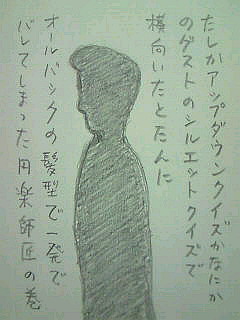 たしかアップダウンクイズかなにか
のゲストのシルエットクイズで
横向いたとたんに
オールバックの髪型で一発で
バレてしまった円楽師匠の巻